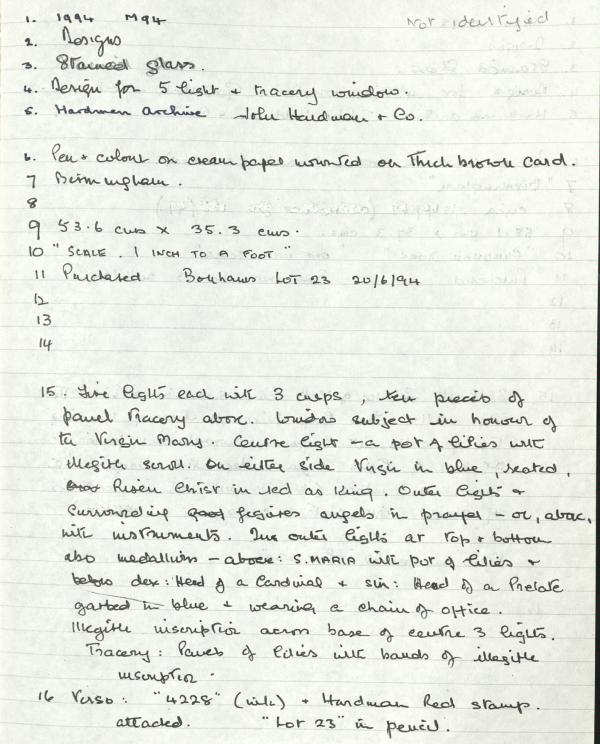 Not identified
1. 1994 M94
2. Designs
3. Stained glass.
4. Design for 5 light + tracery window.
5. Hardman Archive - John Hardman + Co.
6. Pen + colour on cream paper mounted on thick brown card.
7 Birmingham.
8
9 53.6 cms × 35.3 cms.
10 "SCALE. 1 INCH TO A FOOT"
11 Purchased Bonhams LOT 23 20/6/94
12
13
14
15. Five lights each with 3 cusps, ten pieces of
panel tracery above. Window subject in honour of
the Virgin Mary. Centre light - a pot of lilies with
illegible scroll. On either side Virgin in blue, seated,
Risen Christ in red as King. Outer lights +
surrounding figures angels in prayer - or, above,
with instruments. Two outer lights at top + bottom
also medallions - above: S. MARIA with pot of lilies +
below dex: Head of a Cardinal + sin: Head of a Prelate
garbed in blue + wearing a chain of office.
Illegible inscription across base of centre 3 lights.
Tracery: Panels of lilies with bands of illegible
inscription.
16 Verso: "4228" (ink) + Hardman Red stamp.
attached. "Lot 23" in pencil.